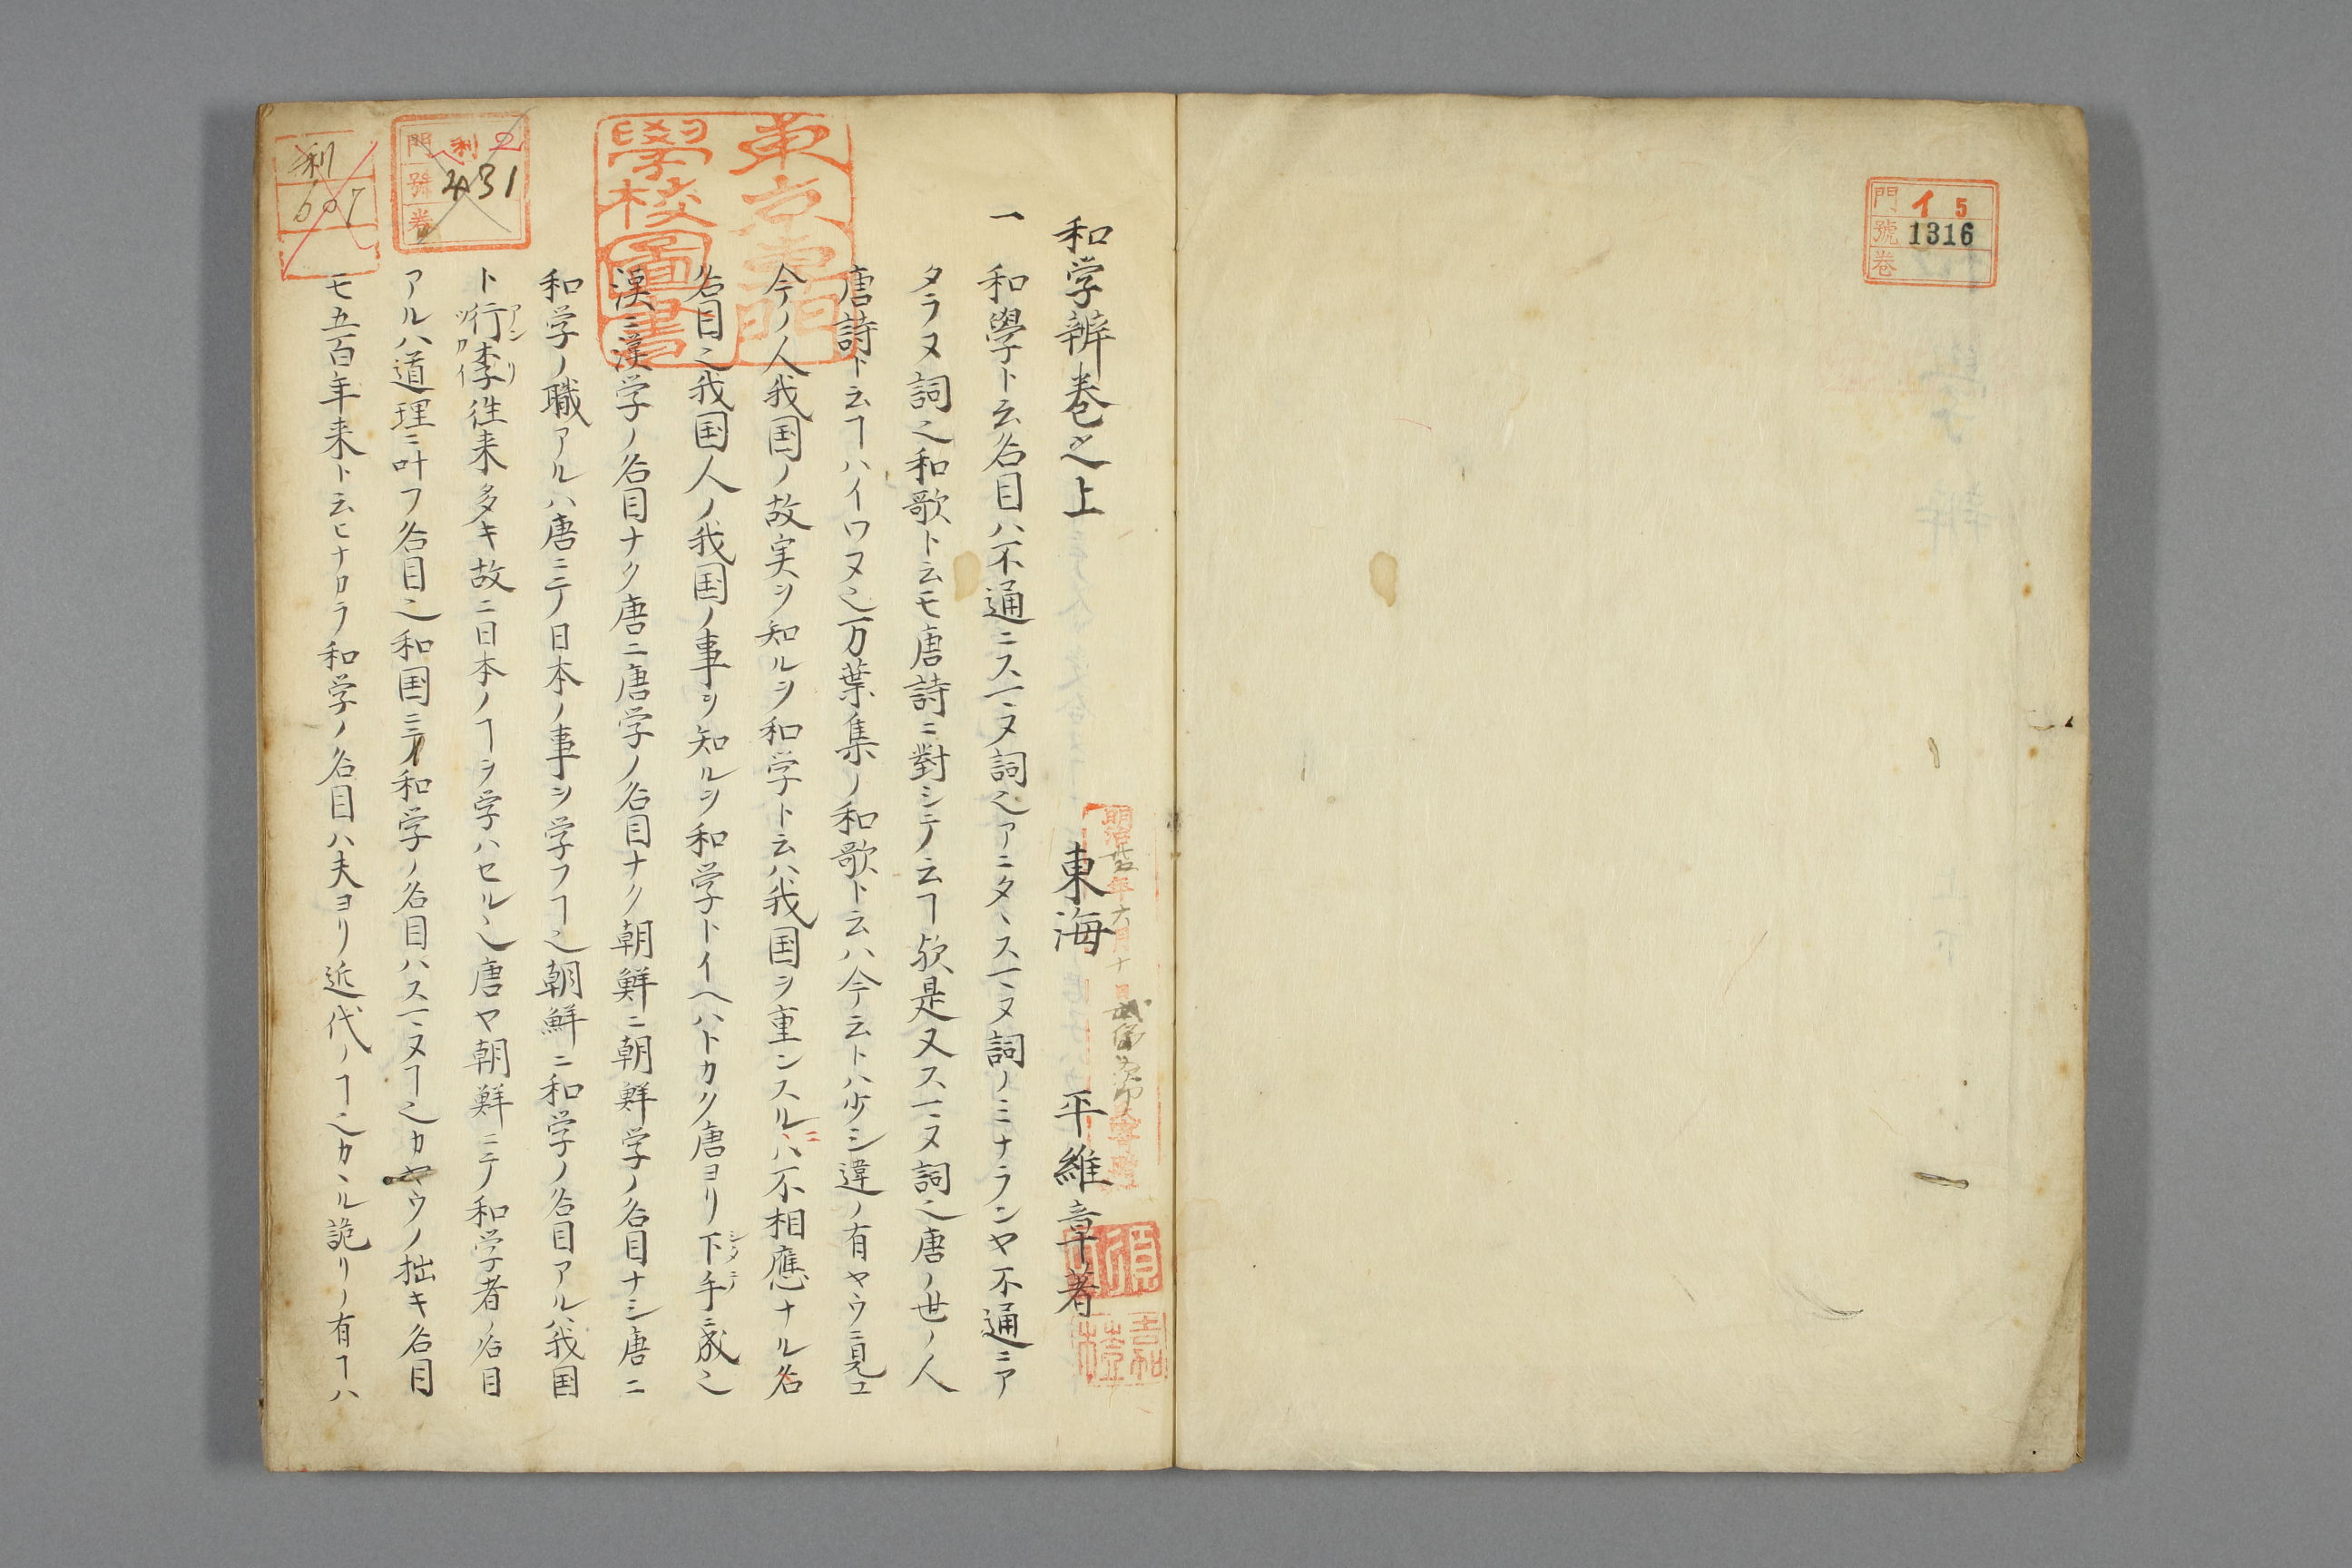 イ 5
門
1316
號
卷
和学辨巻之上
東海 平維章著
一 和學ト云名目ハ不通ニスマヌ詞也アニタヽスマヌ詞ノミナランヤ不通ニア
タラヌ詞也和歌ト云モ唐詩ニ對シテノ云ヿ欤是又スマヌ詞也唐ノ世ノ人
唐詩ト云ヿハイワヌ也万葉集ノ和歌ト云ハ今ノ云トハ少シ違ノ有ヤウニ見ユ
今ノ人我国ノ故実ヲ知ルヲ和学ト云ハ我国ヲ重ンスルニハ不相應ナル名
名目也我国人ノ我国ノ事ヲ知ルヲ和学トイヘハトカク唐ヨリ下手ニ成也
シタテ
漢ニ漢学ノ名目ナク唐ニ唐学ノ名目ナク朝鮮ニ朝鮮学ノ名目ナシ唐ニ
和学ノ職アルハ唐ニテ日本ノ事ヲ学フヿ也朝鮮ニ和学ノ名目アルハ我国
ト行李徃来多キ故ニ日本ノヿヲ学ハセル也唐ヤ朝鮮ニテ和学者ノ名目
アンリ
ツカイ
アルハ道理ニ叶フ名目也和国ニテ和学ノ名目ハスマヌヿ也カヤウノ拙キ名目
モ五百年来ト云ヒナカラ和学ノ名目ハ夫ヨリ近代ノヿ也カヽル詭リノ有ヿハ
東京専門
學校圖書
門 利 2
號 431
卷
利
607